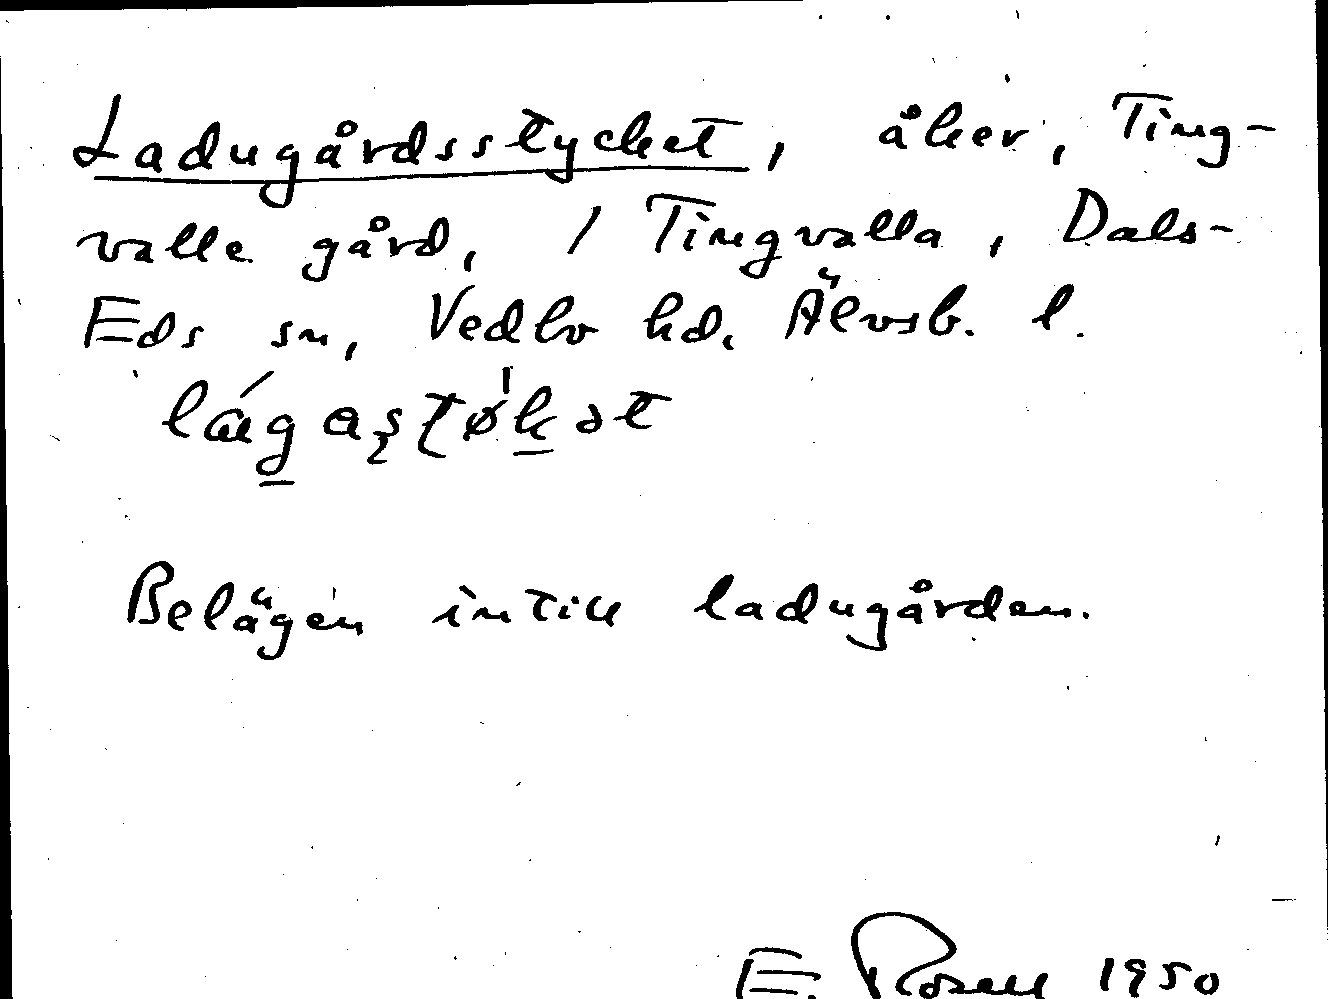 Ladugårdsstycket, åker, Ting-
valla gård, / Tingvalla, Dals-
Eds sn, Vedbo hd. Älvsb. l.
Belägen intill ladugården.
E. Rosell 1950